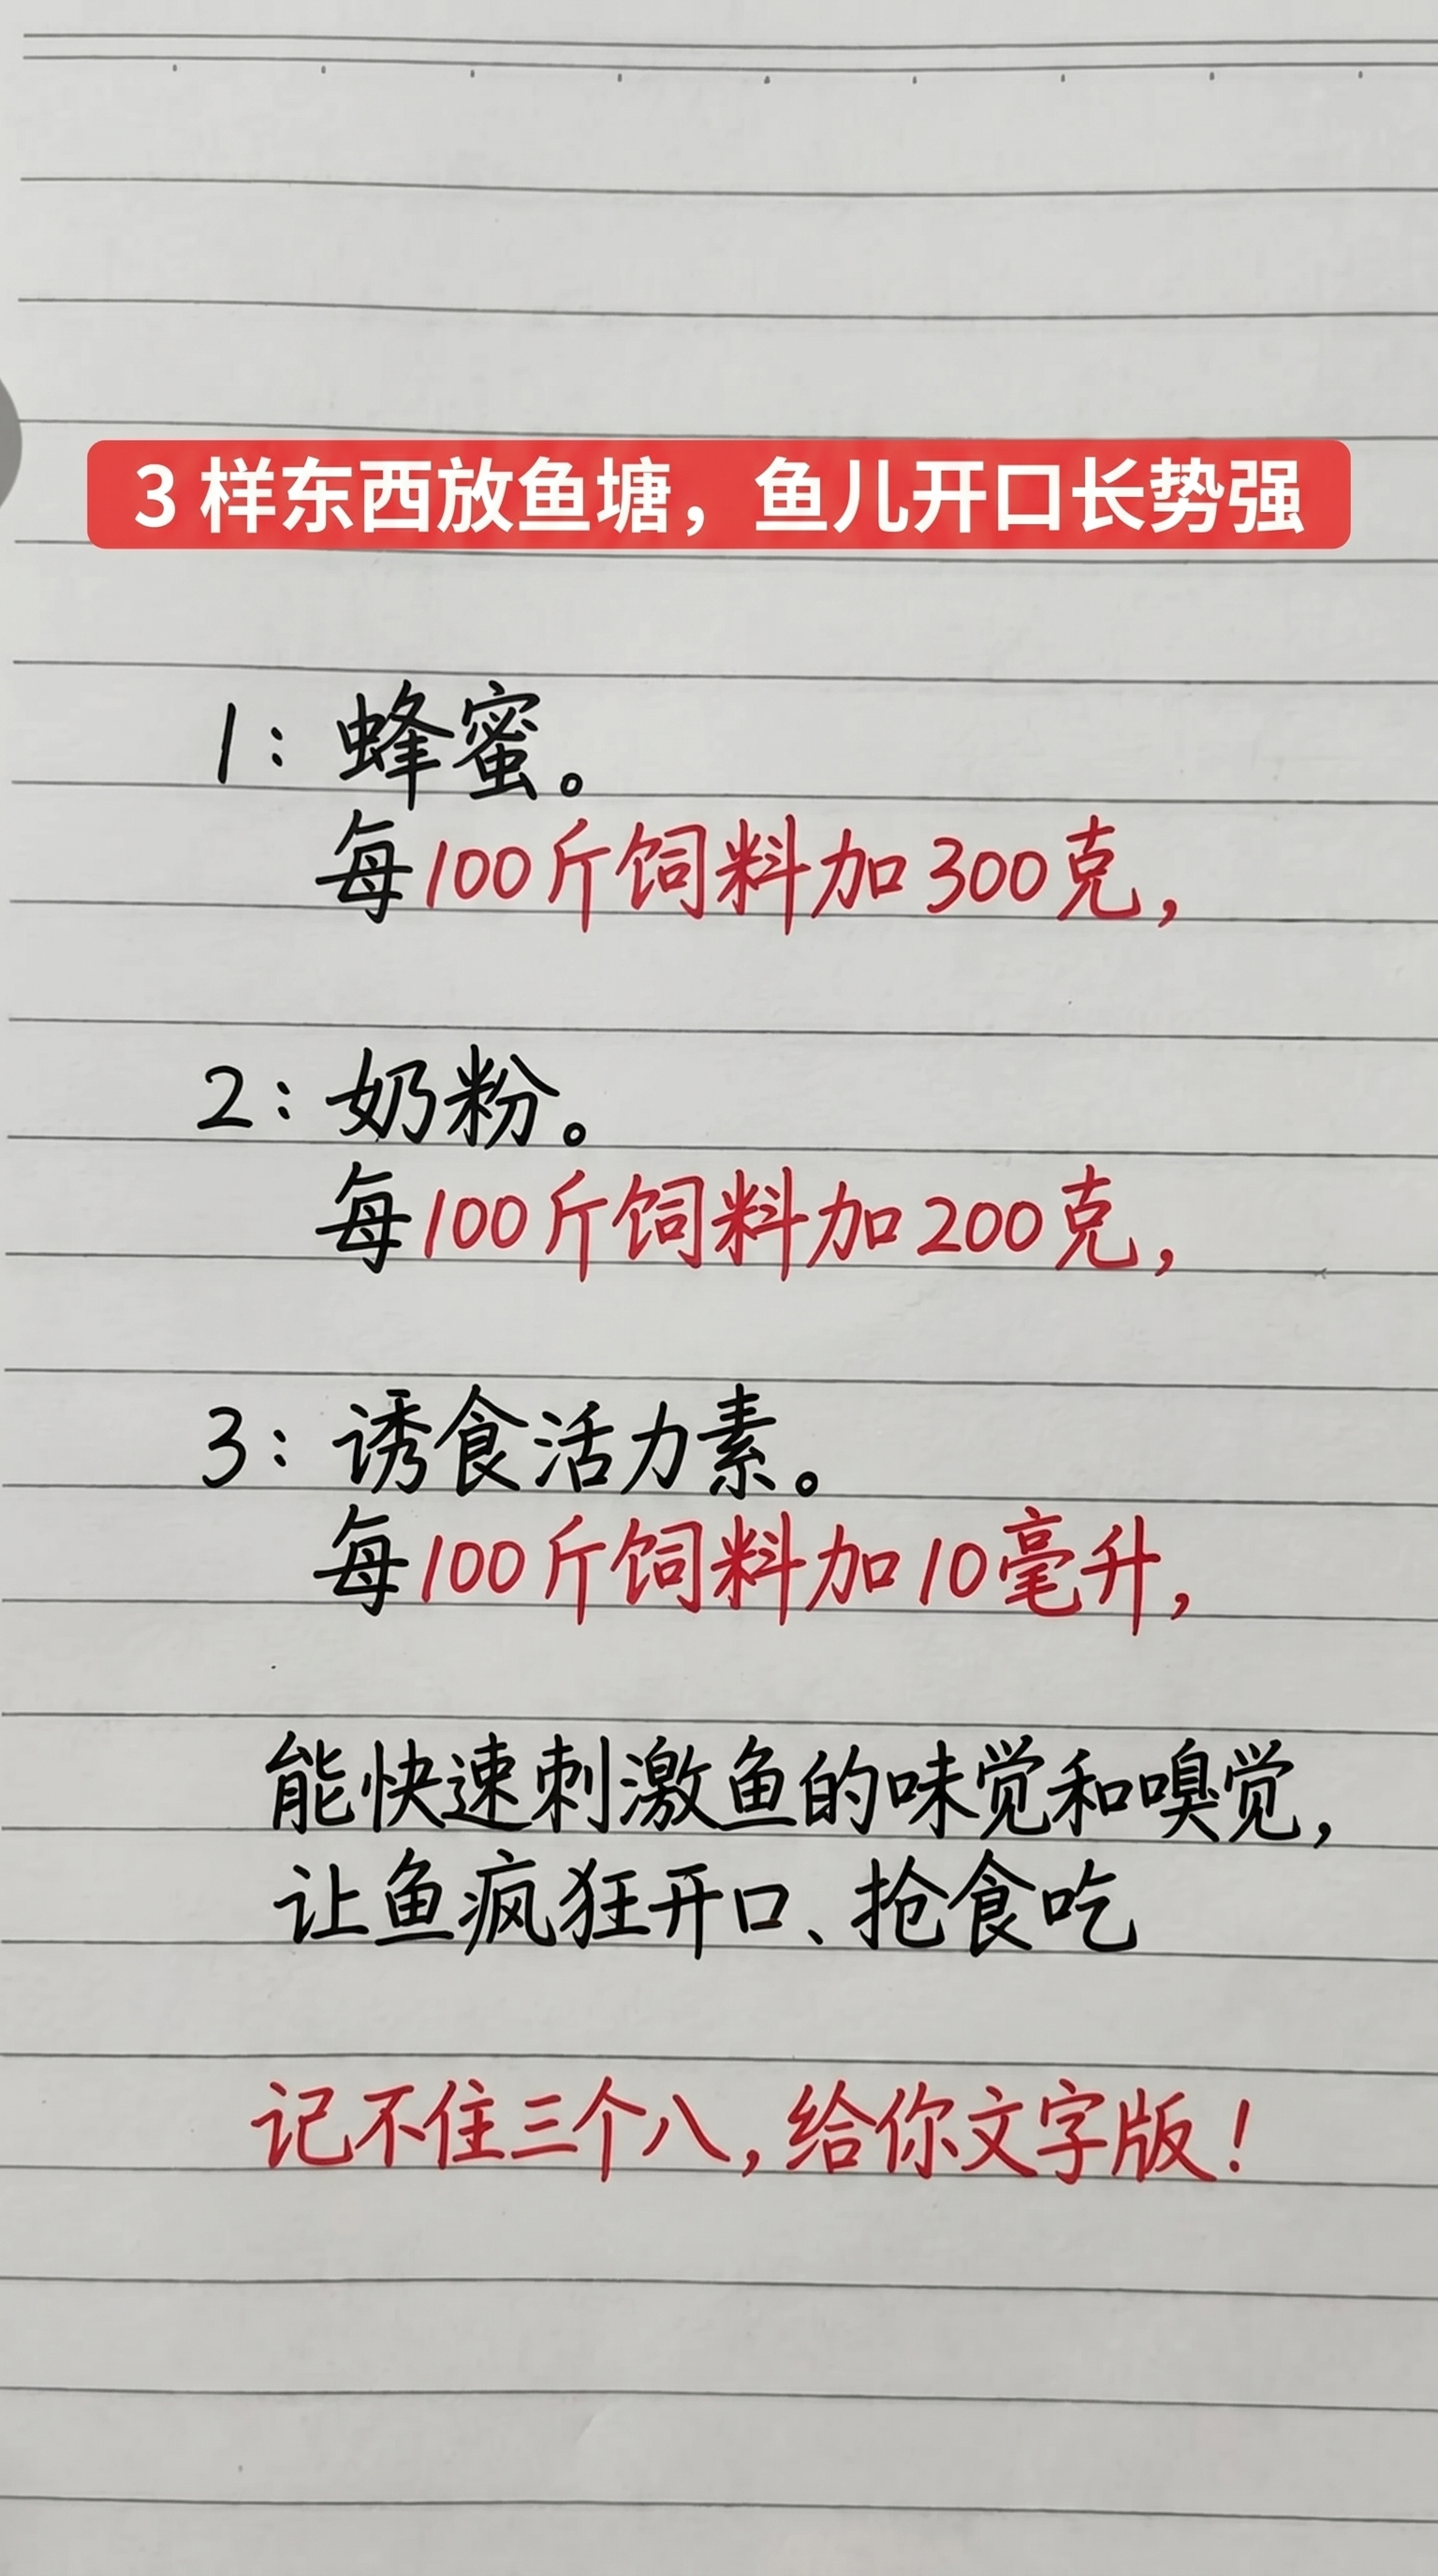 3 样东西放鱼塘，鱼儿开口长势强
1：蜂蜜。
每100斤饲料加300克，
2：奶粉。
每100斤饲料加200克，
3：诱食活力素。
每100斤饲料加10毫升，
能快速刺激鱼的味觉和嗅觉，
让鱼疯狂开口、抢食吃
记不住三个八，给你文字版！